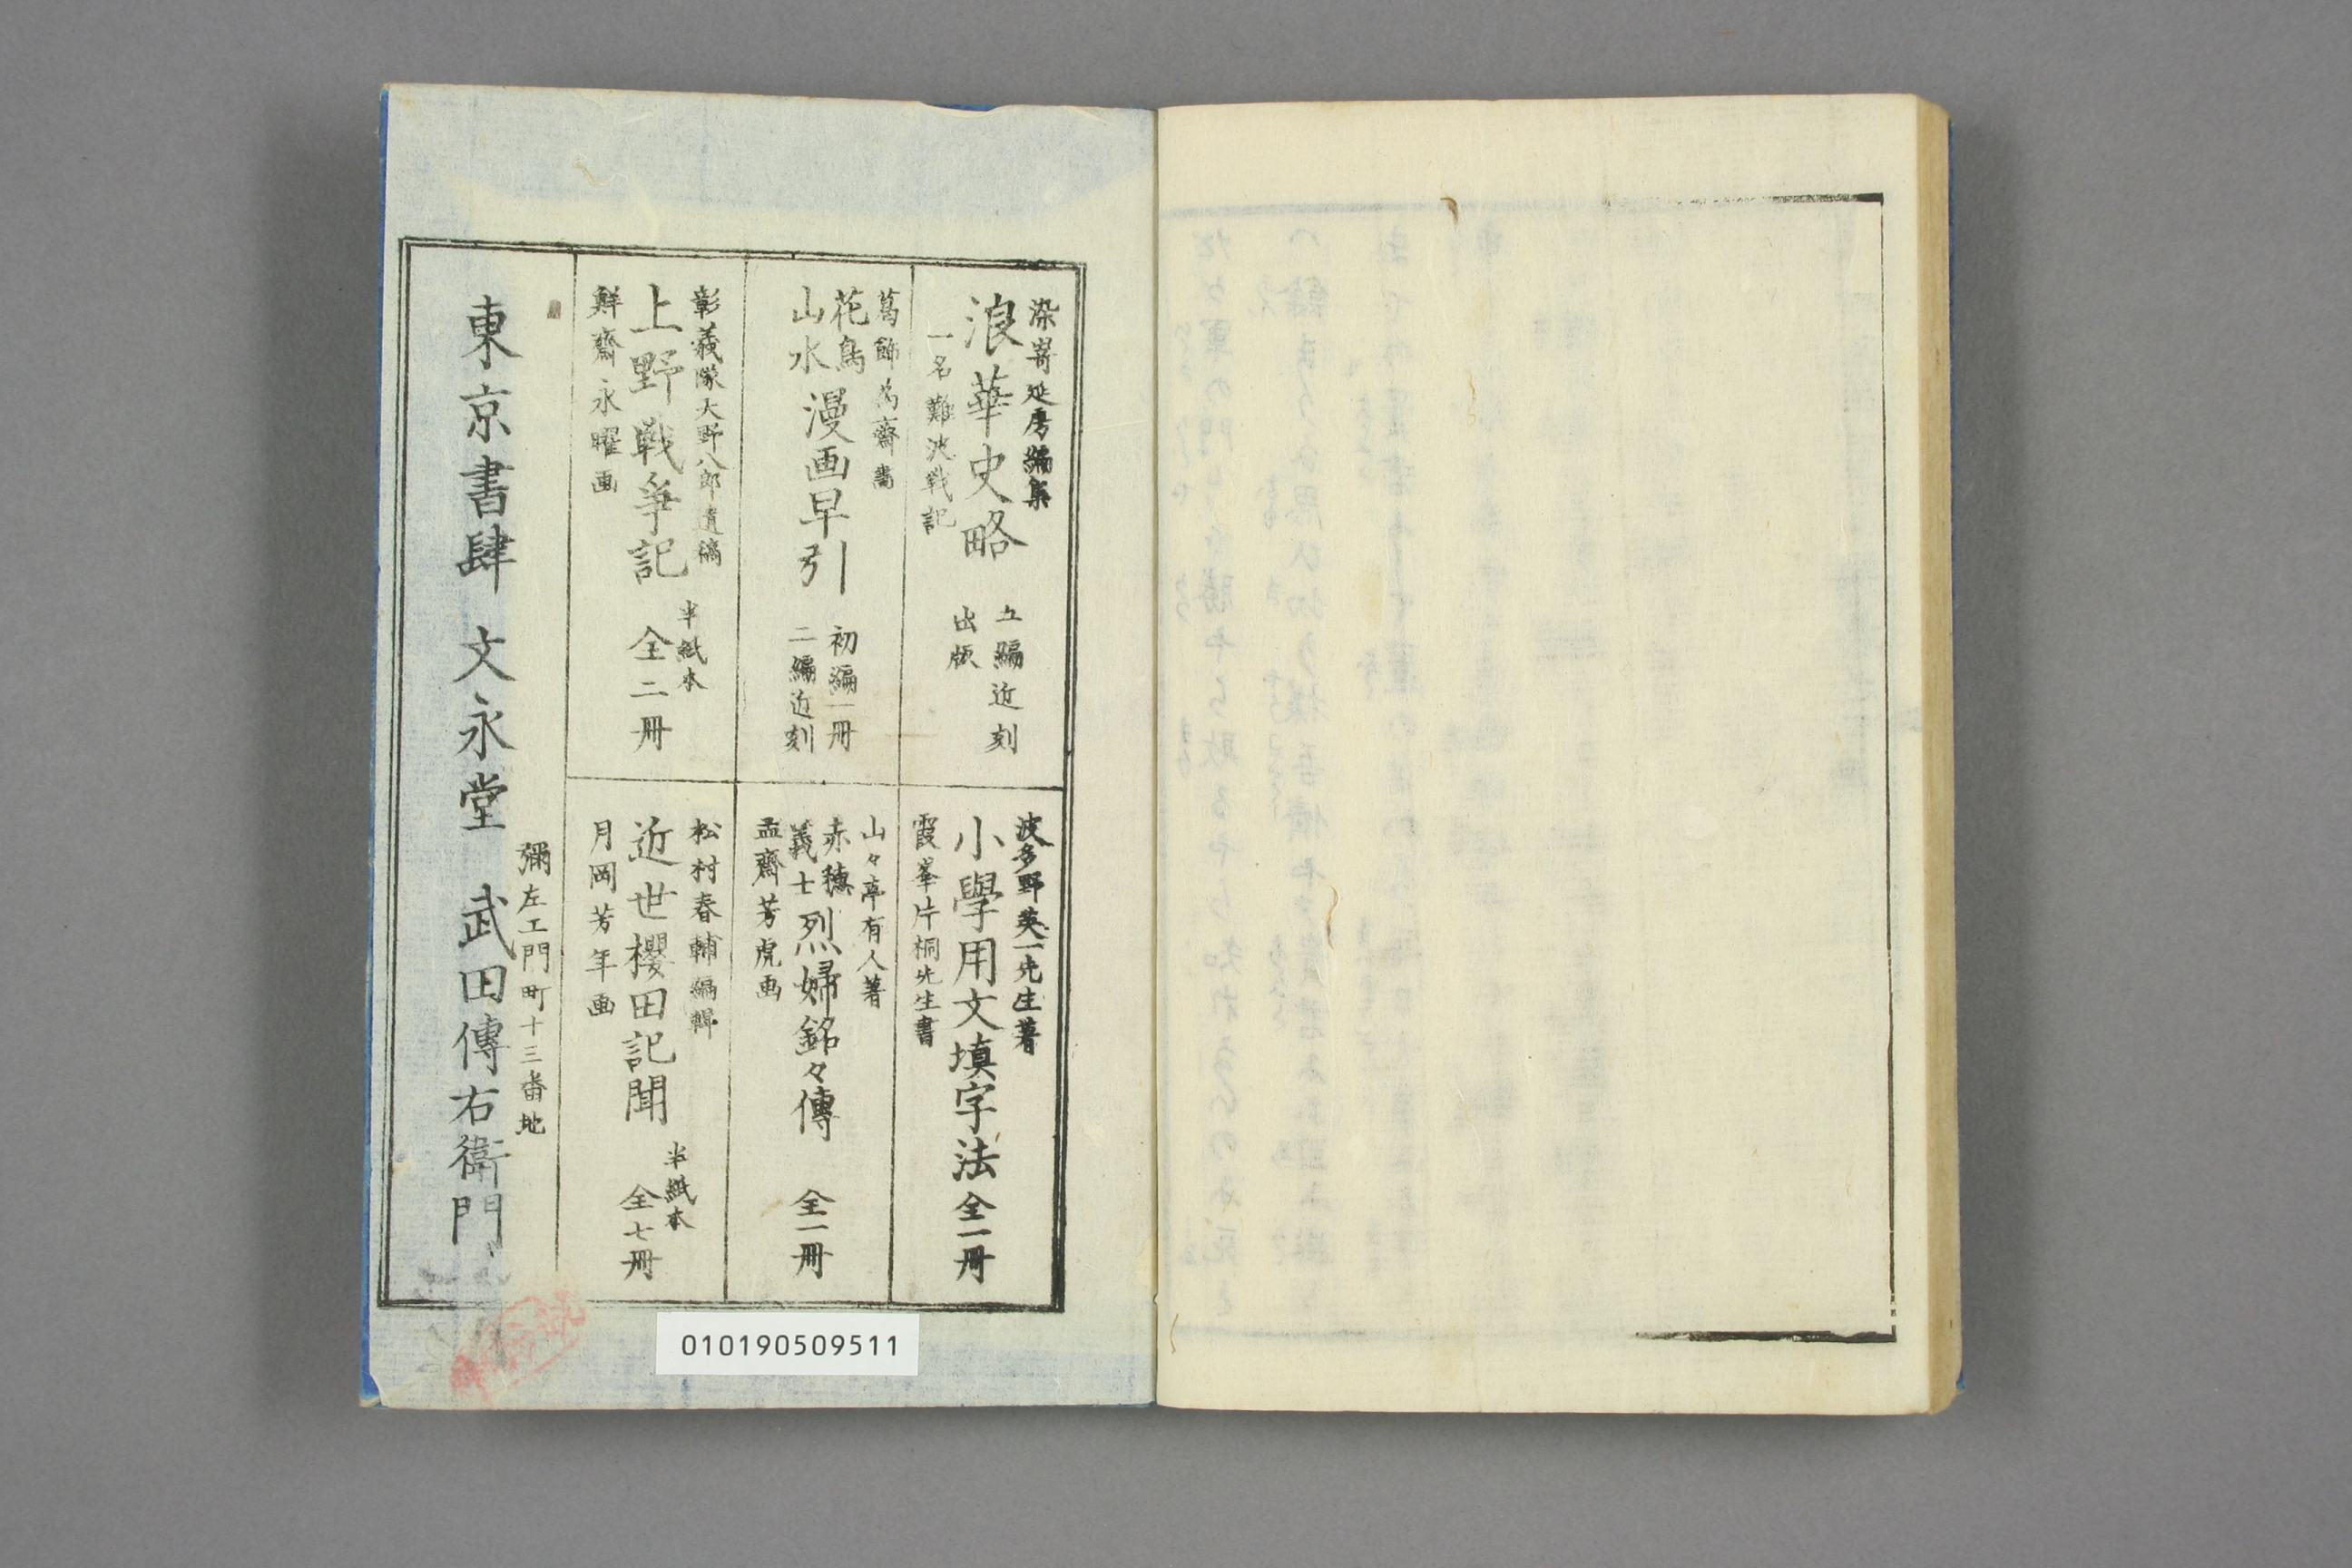 染嵜延房編集
浪華史略
一名難波戦記
五編近刻
出版
葛飾為齋画
花鳥
山水
漫画早引
初編一冊
二編近刻
彰義隊大野八郎遺稿
上野戦争記
鮮齋永曜画
半紙本
全二冊
波多野英一先生著
小學用文填字法 全一冊
霞峯片桐先生書
山々亭有人著
赤穗
義士
烈婦銘々傳 全一冊
孟齋芳虎画
松村春輔編輯
近世櫻田記聞
月岡芳年画
半紙本
全七冊
彌左エ門町十三番地
東京書肆 文永堂 武田傳右衛門
010190509511